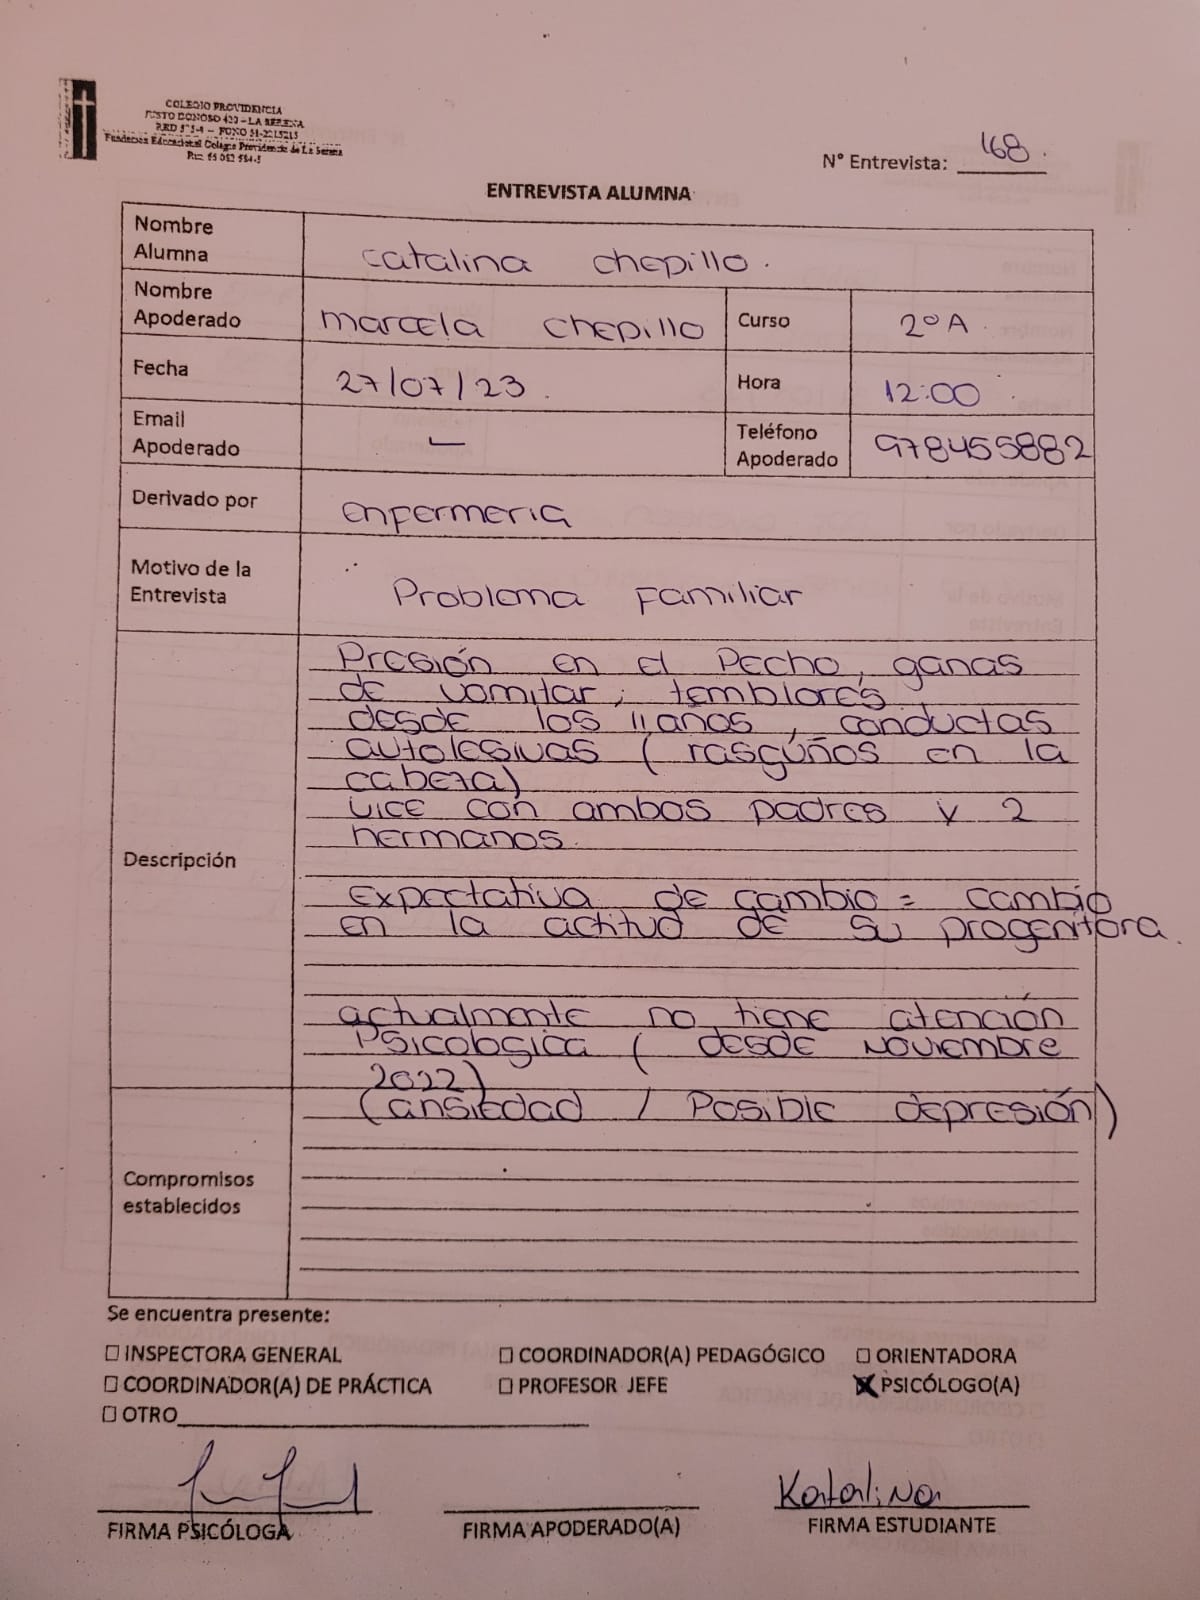 COLEGIO PROVIDENCIA
JUSTO DONOSO 420 - LA SERENA
- FONO 51-2215215
Fundación Educacional Colegio Providencia de La Serena
Rut:
N° Entrevista: 168.
ENTREVISTA ALUMNA
Nombre Alumna
catalina chepillo.
Nombre Apoderado
marcela chepillo
Curso
2°A.
Fecha
27/07/23.
Hora
12:00.
Email Apoderado
—
Teléfono Apoderado
978455882
Derivado por
enfermeria
Motivo de la Entrevista
Problema familiar
Descripción
Presión en el Pecho, ganas
de vomitar, temblores
desde los 11 años, conductas
autolesivas (rasguños en la
cabeza)
vice con ambos padres y 2
hermanos.
expectativa de cambio = cambio
en la actitud de su progenitora.
actualmente no tiene atención
Psicologica (desde Noviembre
2022)
(ansiedad / Posible depresión)
Compromisos establecidos
Se encuentra presente:
☐ INSPECTORA GENERAL ☐ COORDINADOR(A) PEDAGÓGICO ☐ ORIENTADORA
☐ COORDINADOR(A) DE PRÁCTICA ☐ PROFESOR JEFE ☒ PSICÓLOGO(A)
☐ OTRO
Katalina
FIRMA PSICÓLOGA FIRMA APODERADO(A) FIRMA ESTUDIANTE